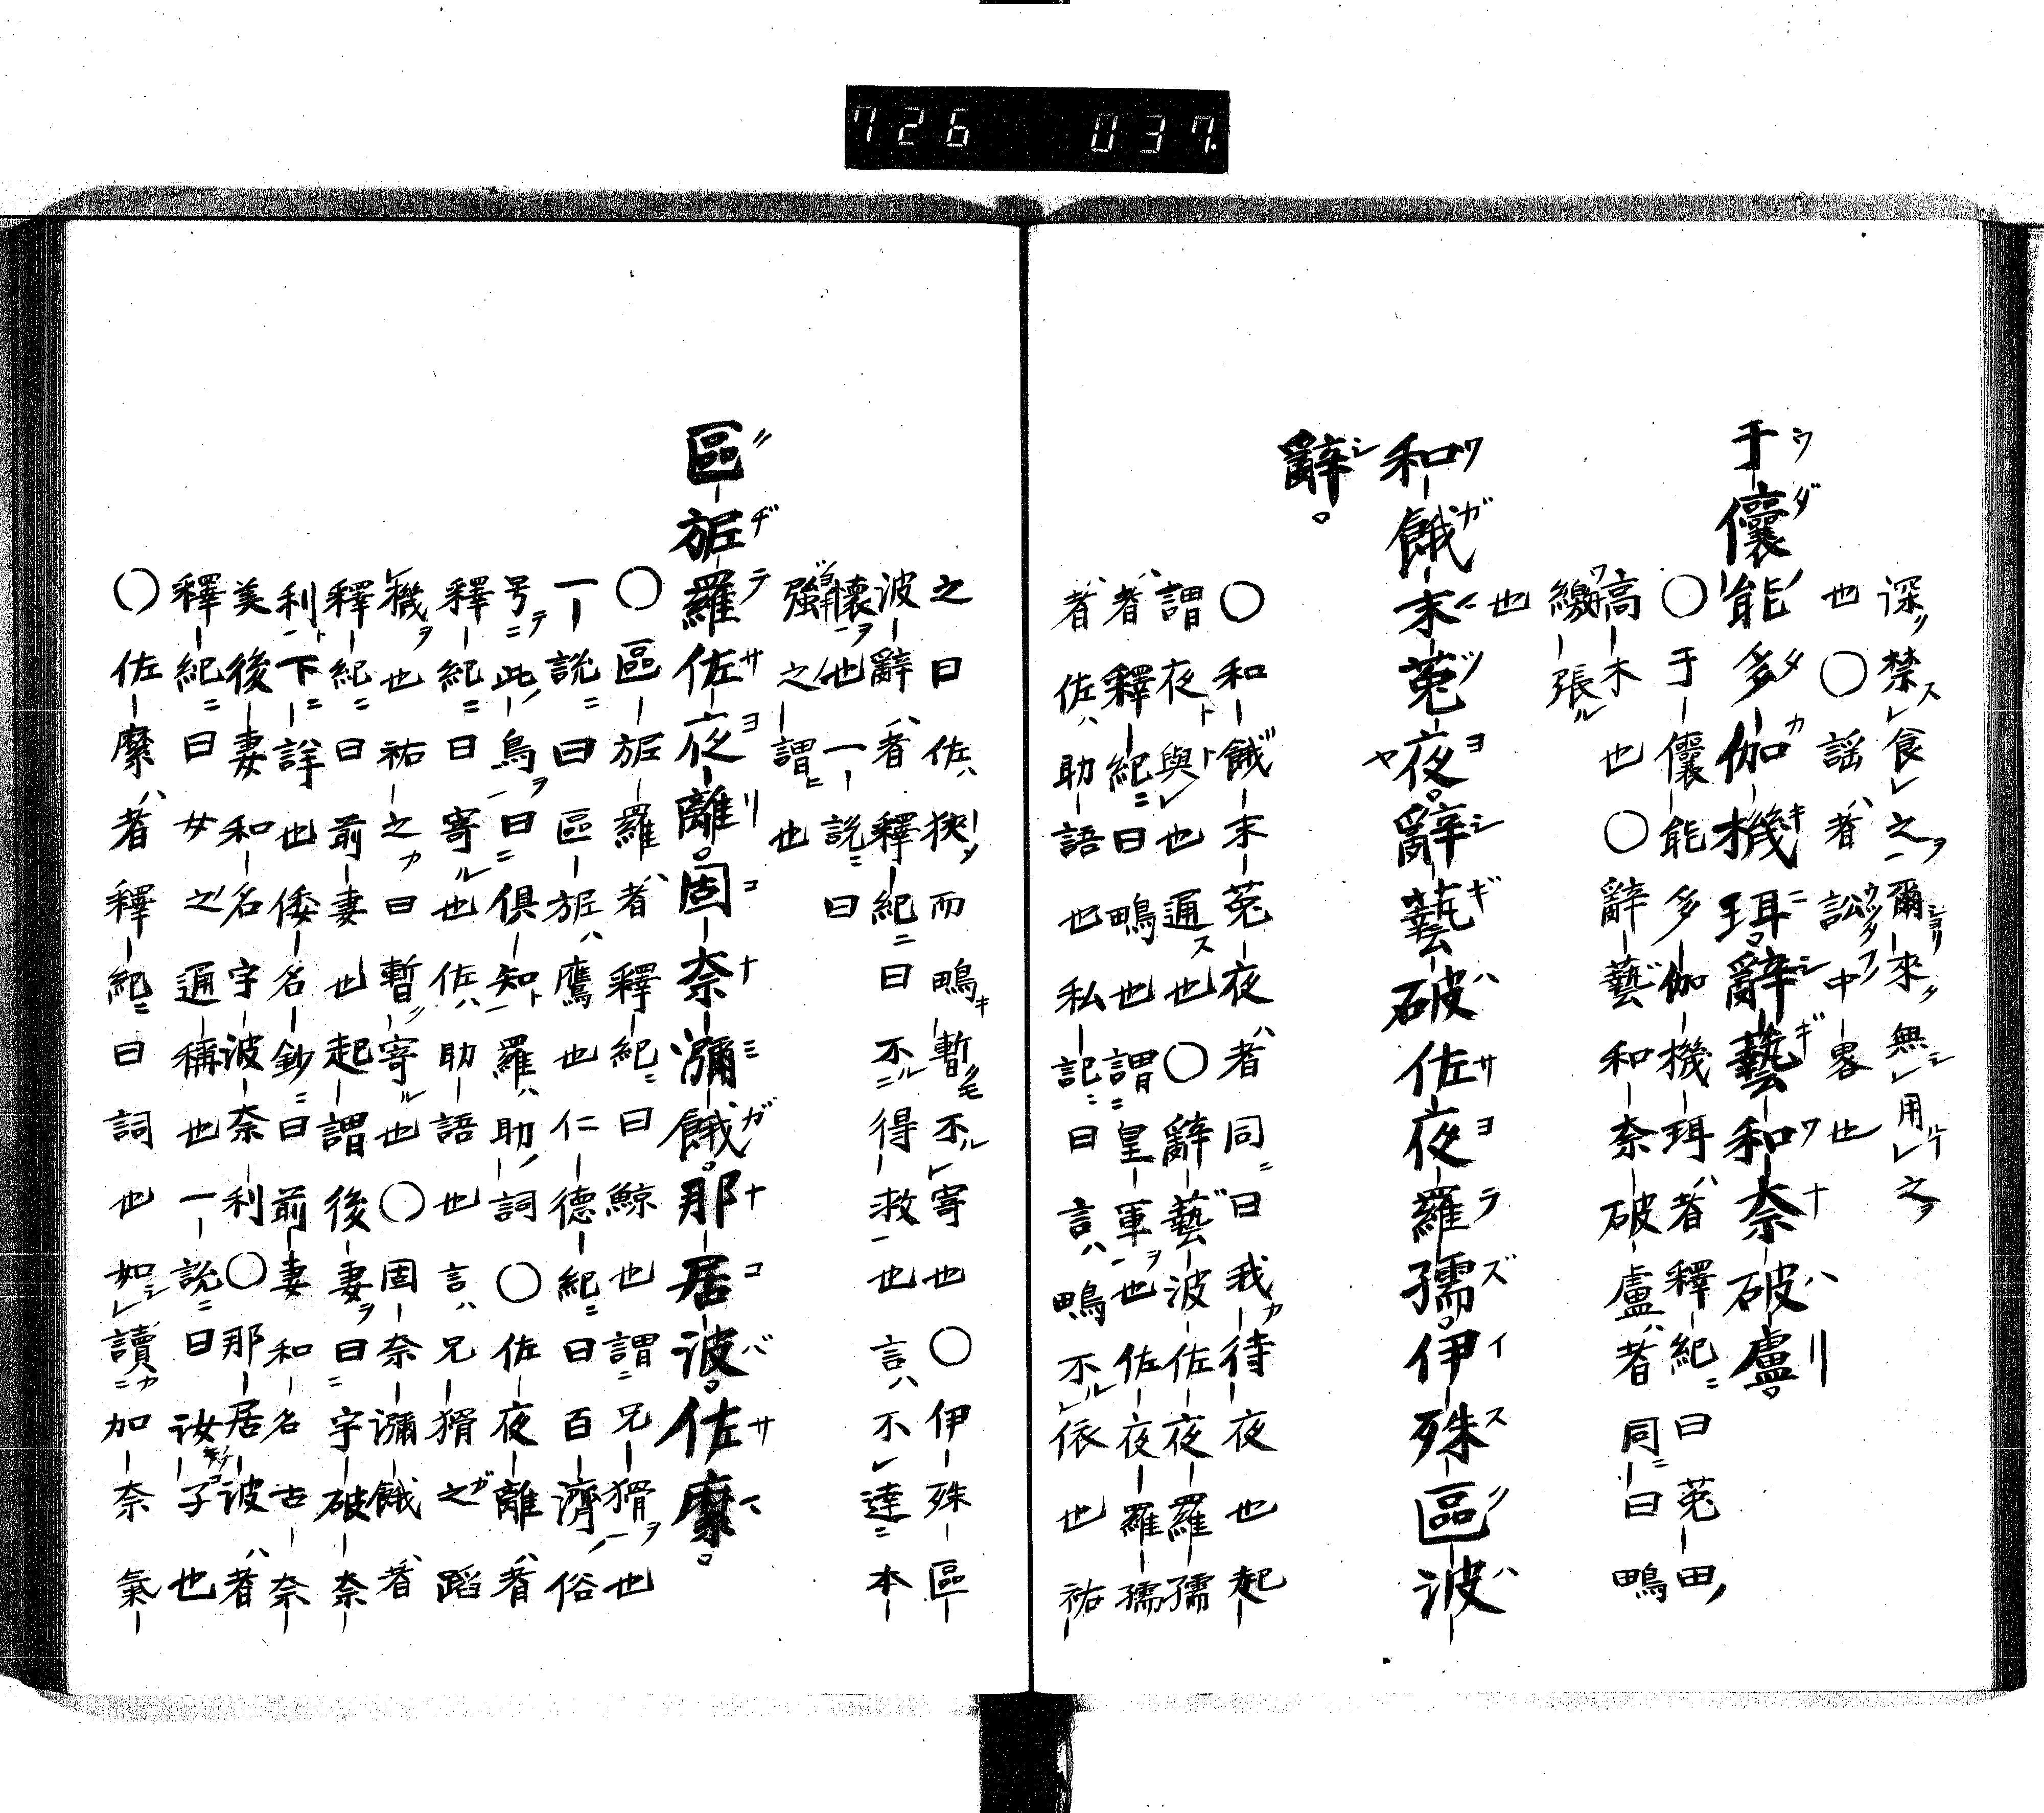 726 037.
深禁食之爾來無用之
也〇謡者訟中畧也
于儾能多伽機珥辭藝和奈破盧
〇于儾能多伽機珥者釋紀曰菟田
高木也〇辭藝和奈破盧者同曰鴫
繳張
也
和餓末菟夜辭藝破佐夜羅孺伊殊區波
辭
〇和餓末菟夜者同曰我待夜也起
謂夜與也通也〇辭藝波佐夜羅孺
者釋紀曰鴫也謂皇軍也佐夜羅孺
者佐助語也私記曰言鴫不依也祐
之曰佐狹而鴫暫不寄也〇伊殊區
波辭者釋紀曰不得救也言不達本
懷也一說曰
強之謂也
區旎羅佐夜離固奈瀰餓那居波佐縻
〇區旎羅者釋紀曰鯨也謂兄猾也
一說曰區旎鷹也仁德紀曰百濟俗
号此鳥曰俱知羅助詞〇佐夜離者
釋紀曰寄也佐助語也言兄猾之蹈
機也祐之曰暫寄也〇固奈瀰餓者
釋紀曰前妻也起謂後妻曰宇破奈
利下詳也倭名鈔曰前妻和名古奈
美後妻和名宇波奈利〇那居波者
釋紀曰女之通稱也一說曰汝子也
〇佐縻者釋紀曰詞也如讀加奈氣